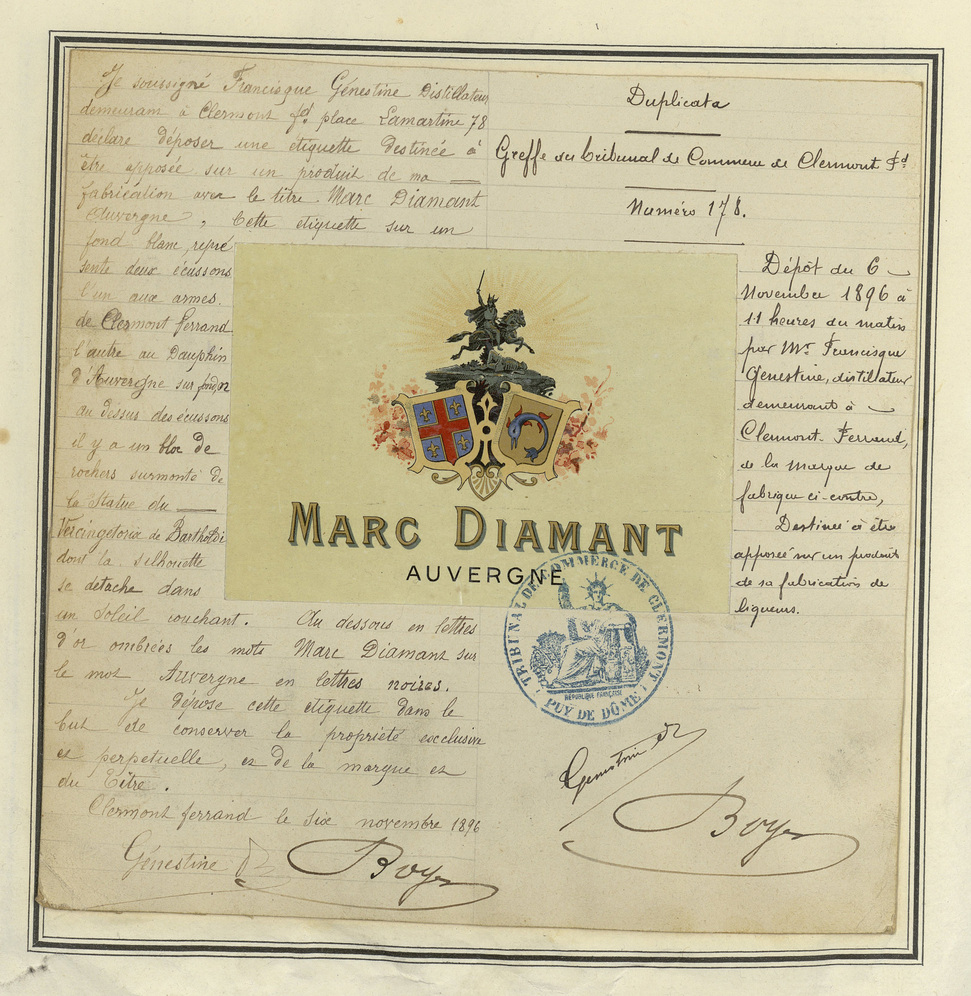 Je soussigné Francisque Génestine Distillateur
demeurant à Clermont fd place Lamartine 78
déclare déposer une étiquette destinée à
être apposée sur un produit de ma
fabrication avec le titre Marc Diamant
Auvergne, Cette etiquette sur un
fond blanc, repré
sente deux écussons
l'un aux armes
de Clermont ferrand
l'autre au Dauphin
d'Auvergne sur
au dessus des écussons
il y a un bloc de
rochers surmonté de
la Statue du
Vercingetorix de Bartholdi
dont la silhouette
se détache dans
un soleil couchant. Au dessous en lettres
d'or ombrées les mots Marc Diamant sur
le mot Auvergne en lettres noires.
Je dépose cette étiquette dans le
but de conserver la propriété exclusive
et perpetuelle, et de la marque et
du Titre.
Clermont ferrand le six novembre 1896
Génestine
Boyer
MARC DIAMANT
AUVERGNE
Duplicata
Greffe du Tribunal de Commerce de Clermont Fd
Numéro 178.
Dépôt du 6
Novembre 1896 à
11 heures du matin
par Mr Francisque
Génestine, distillateur
demeurant à
Clermont-Ferrand,
de la marque de
fabrique ci-contre,
Destinée à être
apposée sur un produit
de sa fabrication de
liqueurs.
TRIBUNAL DE COMMERCE DE CLERMONT
RÉPUBLIQUE FRANÇAISE
PUY DE DÔME
Genestine
Boyer